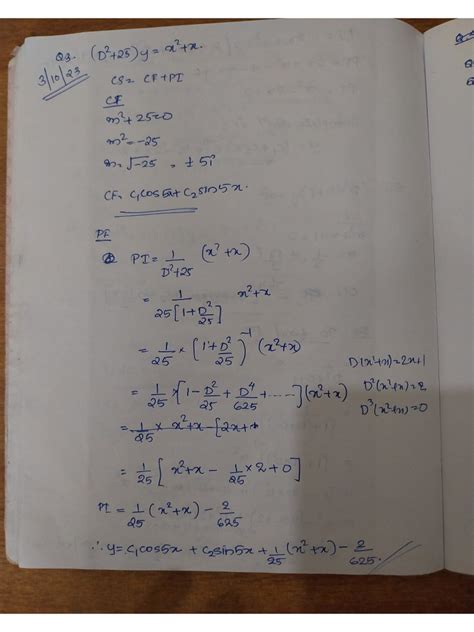 Q3. (D²+25) y = x²+x.
3/10/23
CS = CF+PI
CF
m²+25=0
m²=-25
m=√-25 = ±5i
CF = C₁cos5x+C₂sin5x.
PI
PI = 1/(D²+25) (x²+x)
= 1/(25[1+D²/25]) x²+x
= 1/25 × (1+D²/25)⁻¹ (x²+x)
D(x²+x)=2x+1
= 1/25 × [1-D²/25 + D⁴/625 + ......] (x²+x)
D²(x²+x)=2
D³(x²+x)=0
= 1/25 × x²+x-[2x+
= 1/25 [x²+x - 1/25 ×2+0]
PI = 1/25 (x²+x) - 2/625
∴ y=C₁cos5x + C₂sin5x + 1/25 (x²+x) - 2/625.